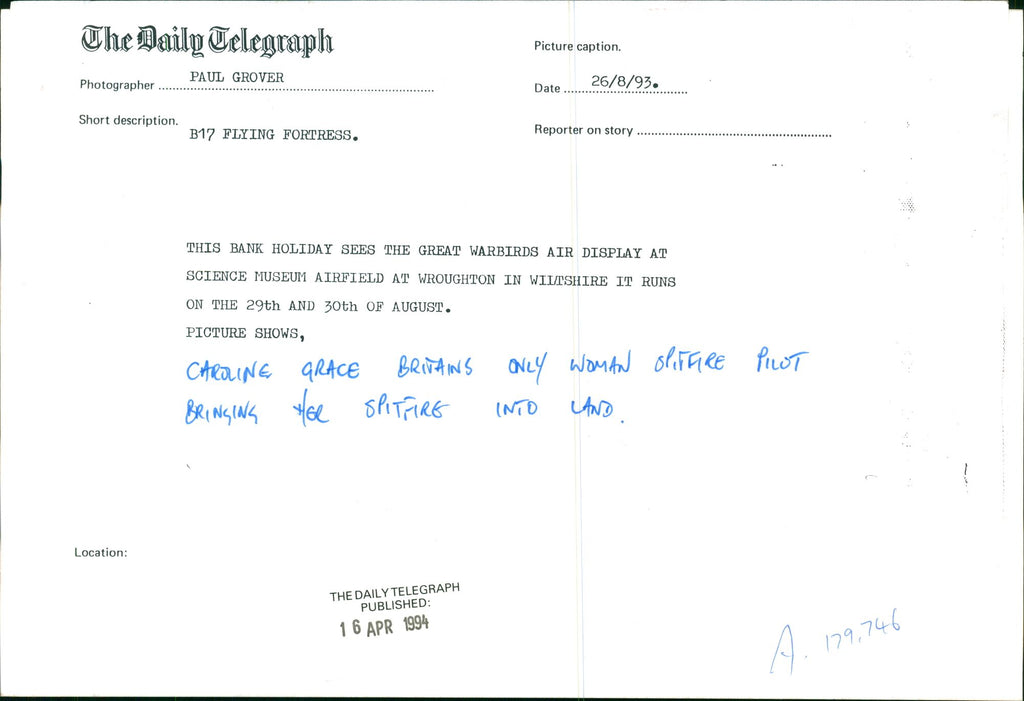 The Daily Telegraph
Picture caption.
Photographer PAUL GROVER
Date 26/8/93.
Short description.
B17 FLYING FORTRESS.
Reporter on story
THIS BANK HOLIDAY SEES THE GREAT WARBIRDS AIR DISPLAY AT
SCIENCE MUSEUM AIRFIELD AT WROUGHTON IN WILTSHIRE IT RUNS
ON THE 29th AND 30th OF AUGUST.
PICTURE SHOWS,
CAROLINE GRACE BRITAINS ONLY WOMAN SPITFIRE PILOT
BRINGING HER SPITFIRE INTO LAND.
Location:
THE DAILY TELEGRAPH
PUBLISHED:
16 APR 1994
A. 179.746